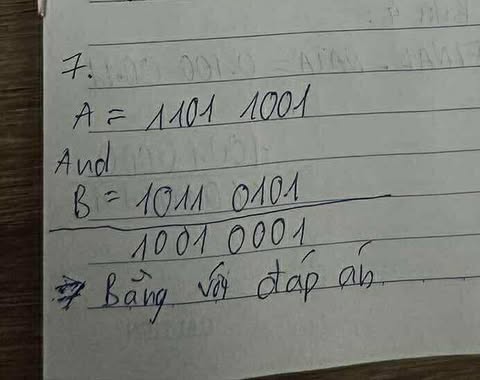 7.
A = 1101 1001
And
B = 1011 0101
1001 0001
=> Bằng với đáp án.